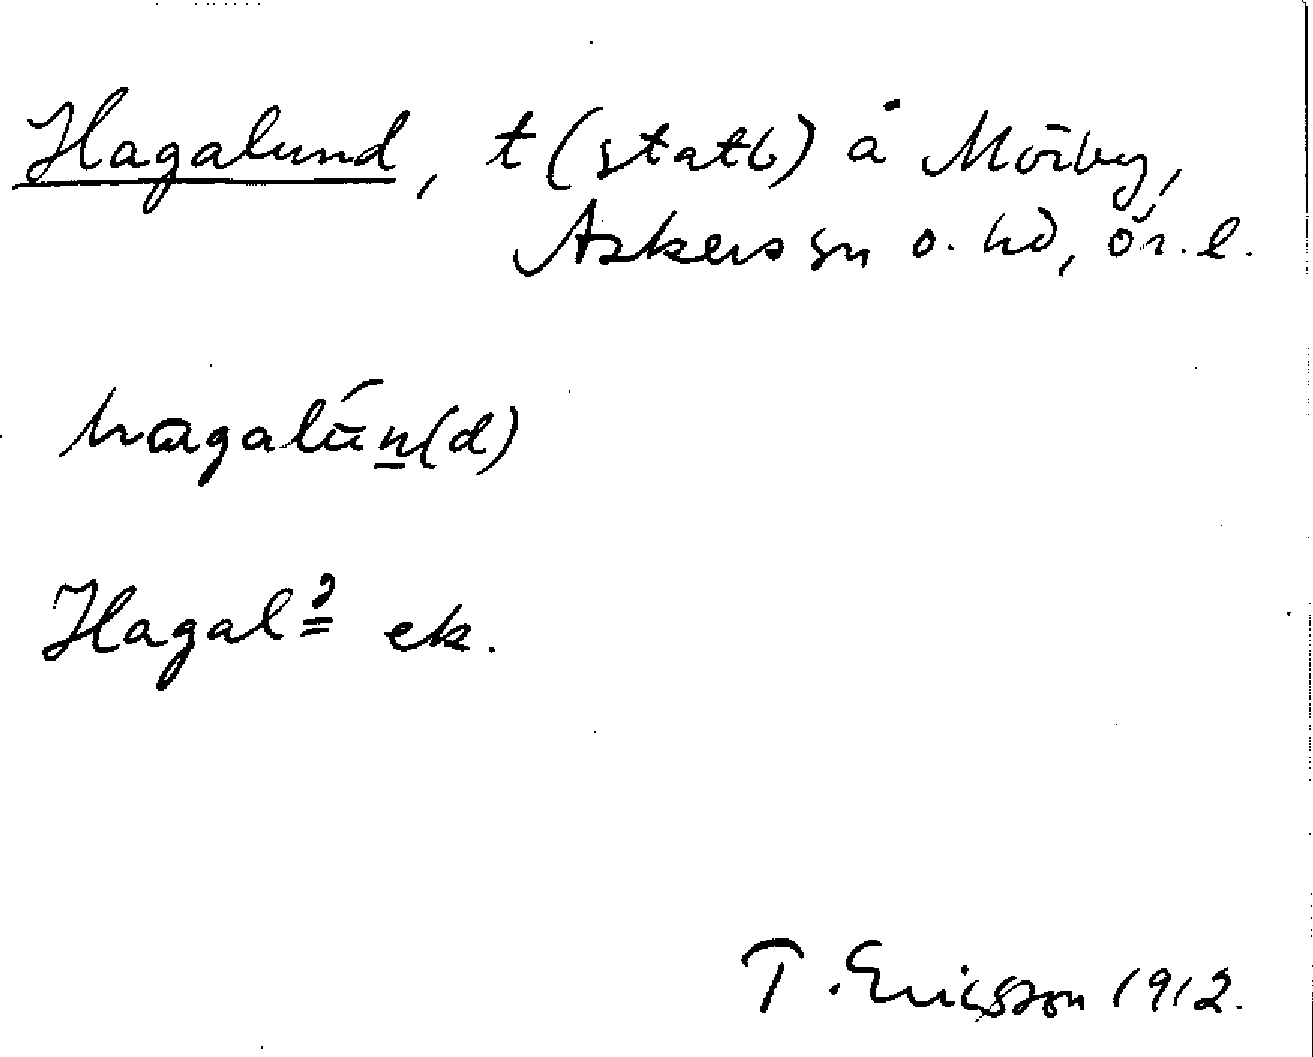 Hagalund, t (statb) å Mörby,
Askers sn o. hd, ör. l.
hagalún(d)
Hagal= ek.
T. Ericsson 1912.